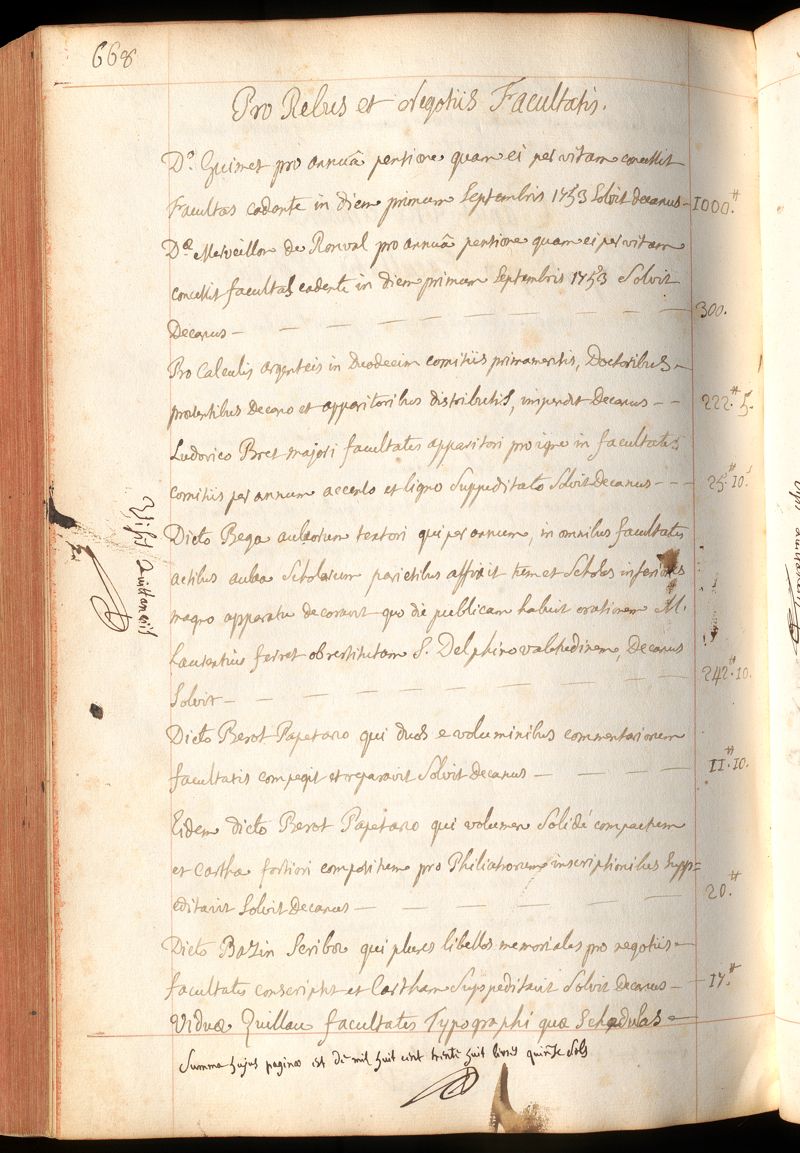 668
Pro Rebus et Negotiis Facultatis.
D.º Guimet pro annuâ pensione quam ei per vitam concessit
Facultas cadente in diem primum Septembris 1753 Solvit decanus - 1000.#
D.æ Merveillon de Ronval pro annuâ pensione quam ei per vitam
concessit facultas cadente in diem primum Septembris 1753 Solvit
Decanus - 300.
Pro Calculis argenteis in Duodecim comitiis primamensis, Doctoribus
praesentibus Decano et apparitoribus distributis, impendit Decanus - - 222.# 5.
Ludovico Bret majori facultatis apparitori pro igne in facultatis
comitiis per annum accenso et ligno Suppeditato Solvit decanus - - - 25.# 10.s
Dicto Bega aulaeorum textori qui per annum, in omnibus facultatis
actibus aulaea Scholarum parietibus affixit tum et Scholas inferiores
magno apparatu decoravit quo die publicam habuit orationem M.
Laurentius ferret ob restitutam S. Delphino valetudinem, Decanus
Solvit - 242.# 10.
Dicto Berot Papetario qui duos e voluminibus commentariorum
facultatis compegit et reparavit Solvit decanus - 11.# 10.
Eidem dicto Berot Papetario qui volumen Solidè compactum
et Cartha fortiori compositum pro Philiatrorum inscriptionibus Supp=
editavit Solvit Decanus - 20.#
Dicto Bazin Scribae qui plures libellos memoriales pro negotiis
facultatis conscripsit et Cartham Suppeditavit Solvit decanus - 17.#
Viduæ Quillau facultatis Typographi quæ Schedulas
Summa hujus paginæ est de mil huit cent trente huit livres quinze Sols